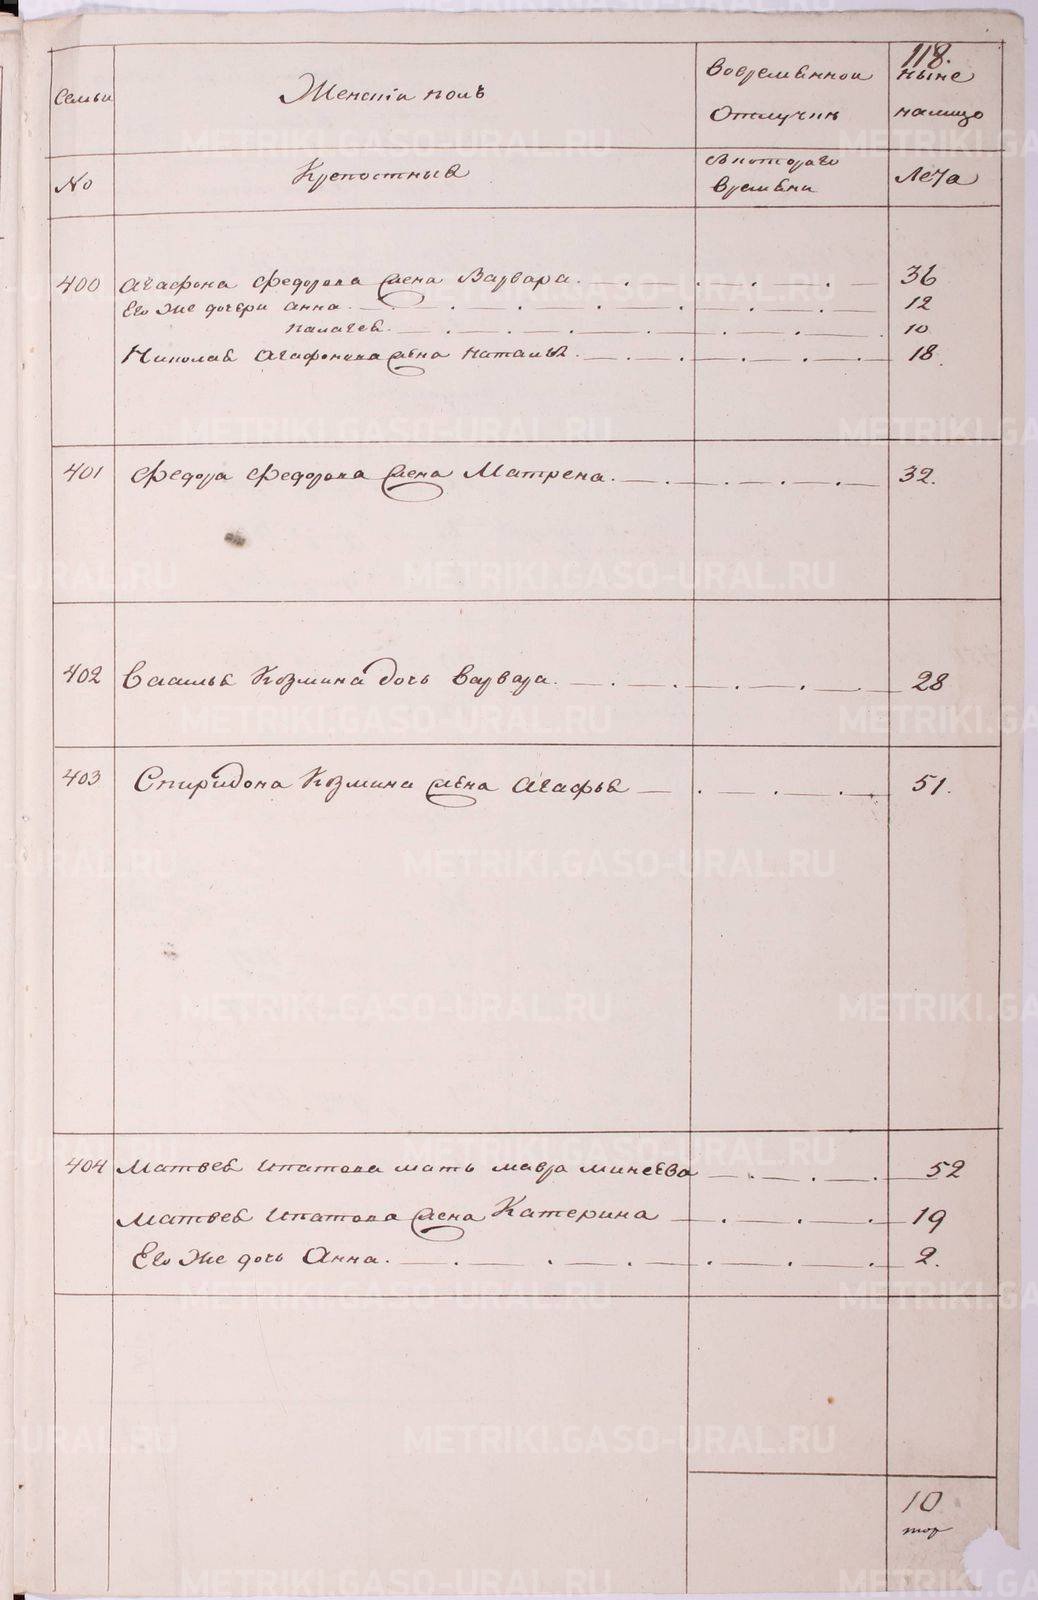 118.
Семьи Женскiй полъ Вовременной ныне
Отлучкѣ налицо
No Крепостныя Скотораго Лета
Времѣни
400 Агафона Федорова жена Варвара 36
Его Же дочери Анна 12
Палагея 10
Николая Агафонова жена Наталья 18
401 Федора Федорова жена Матрена 32.
402 Василья Козмина дочь Варвара 28
403 Спиридона Козмина жена Агафья 51.
404 Матвея Ипатова мать Мавра Минеева 52
Матвея Ипатова жена Катерина 19
Его Же дочь Анна 2.
10
METRIKI.GASO-URAL.RU